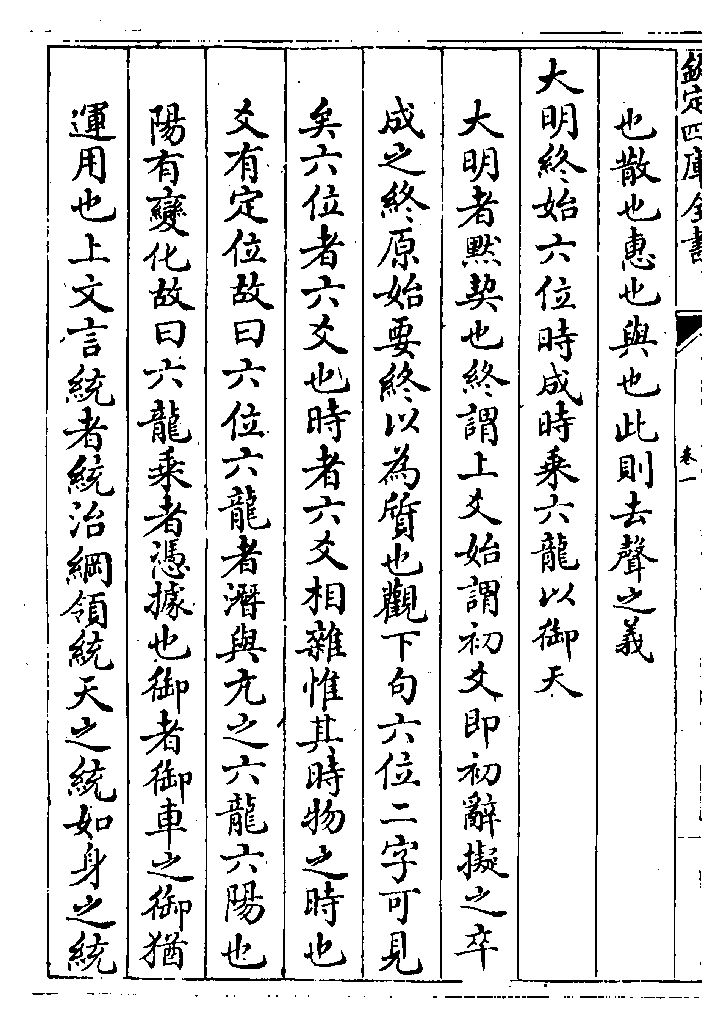 欽定四庫全書
卷一
也散也惠也與也此則去聲之義
大明終始六位時成時乘六龍以御天
大明者黙契也終謂上爻始謂初爻即初辭擬之卒
成之終原始要終以為質也觀下句六位二字可見
矣六位者六爻也時者六爻相雜惟其時物之時也
爻有定位故曰六位六龍者潛與亢之六龍六陽也
陽有變化故曰六龍乘者憑據也御者御車之御猶
運用也上文言統者統治綱領統天之統如身之統